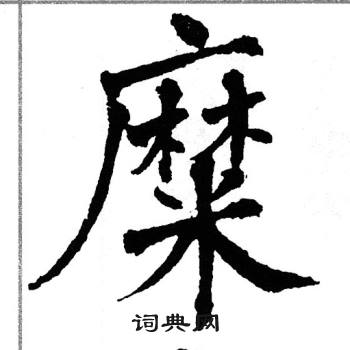 糜
词典网